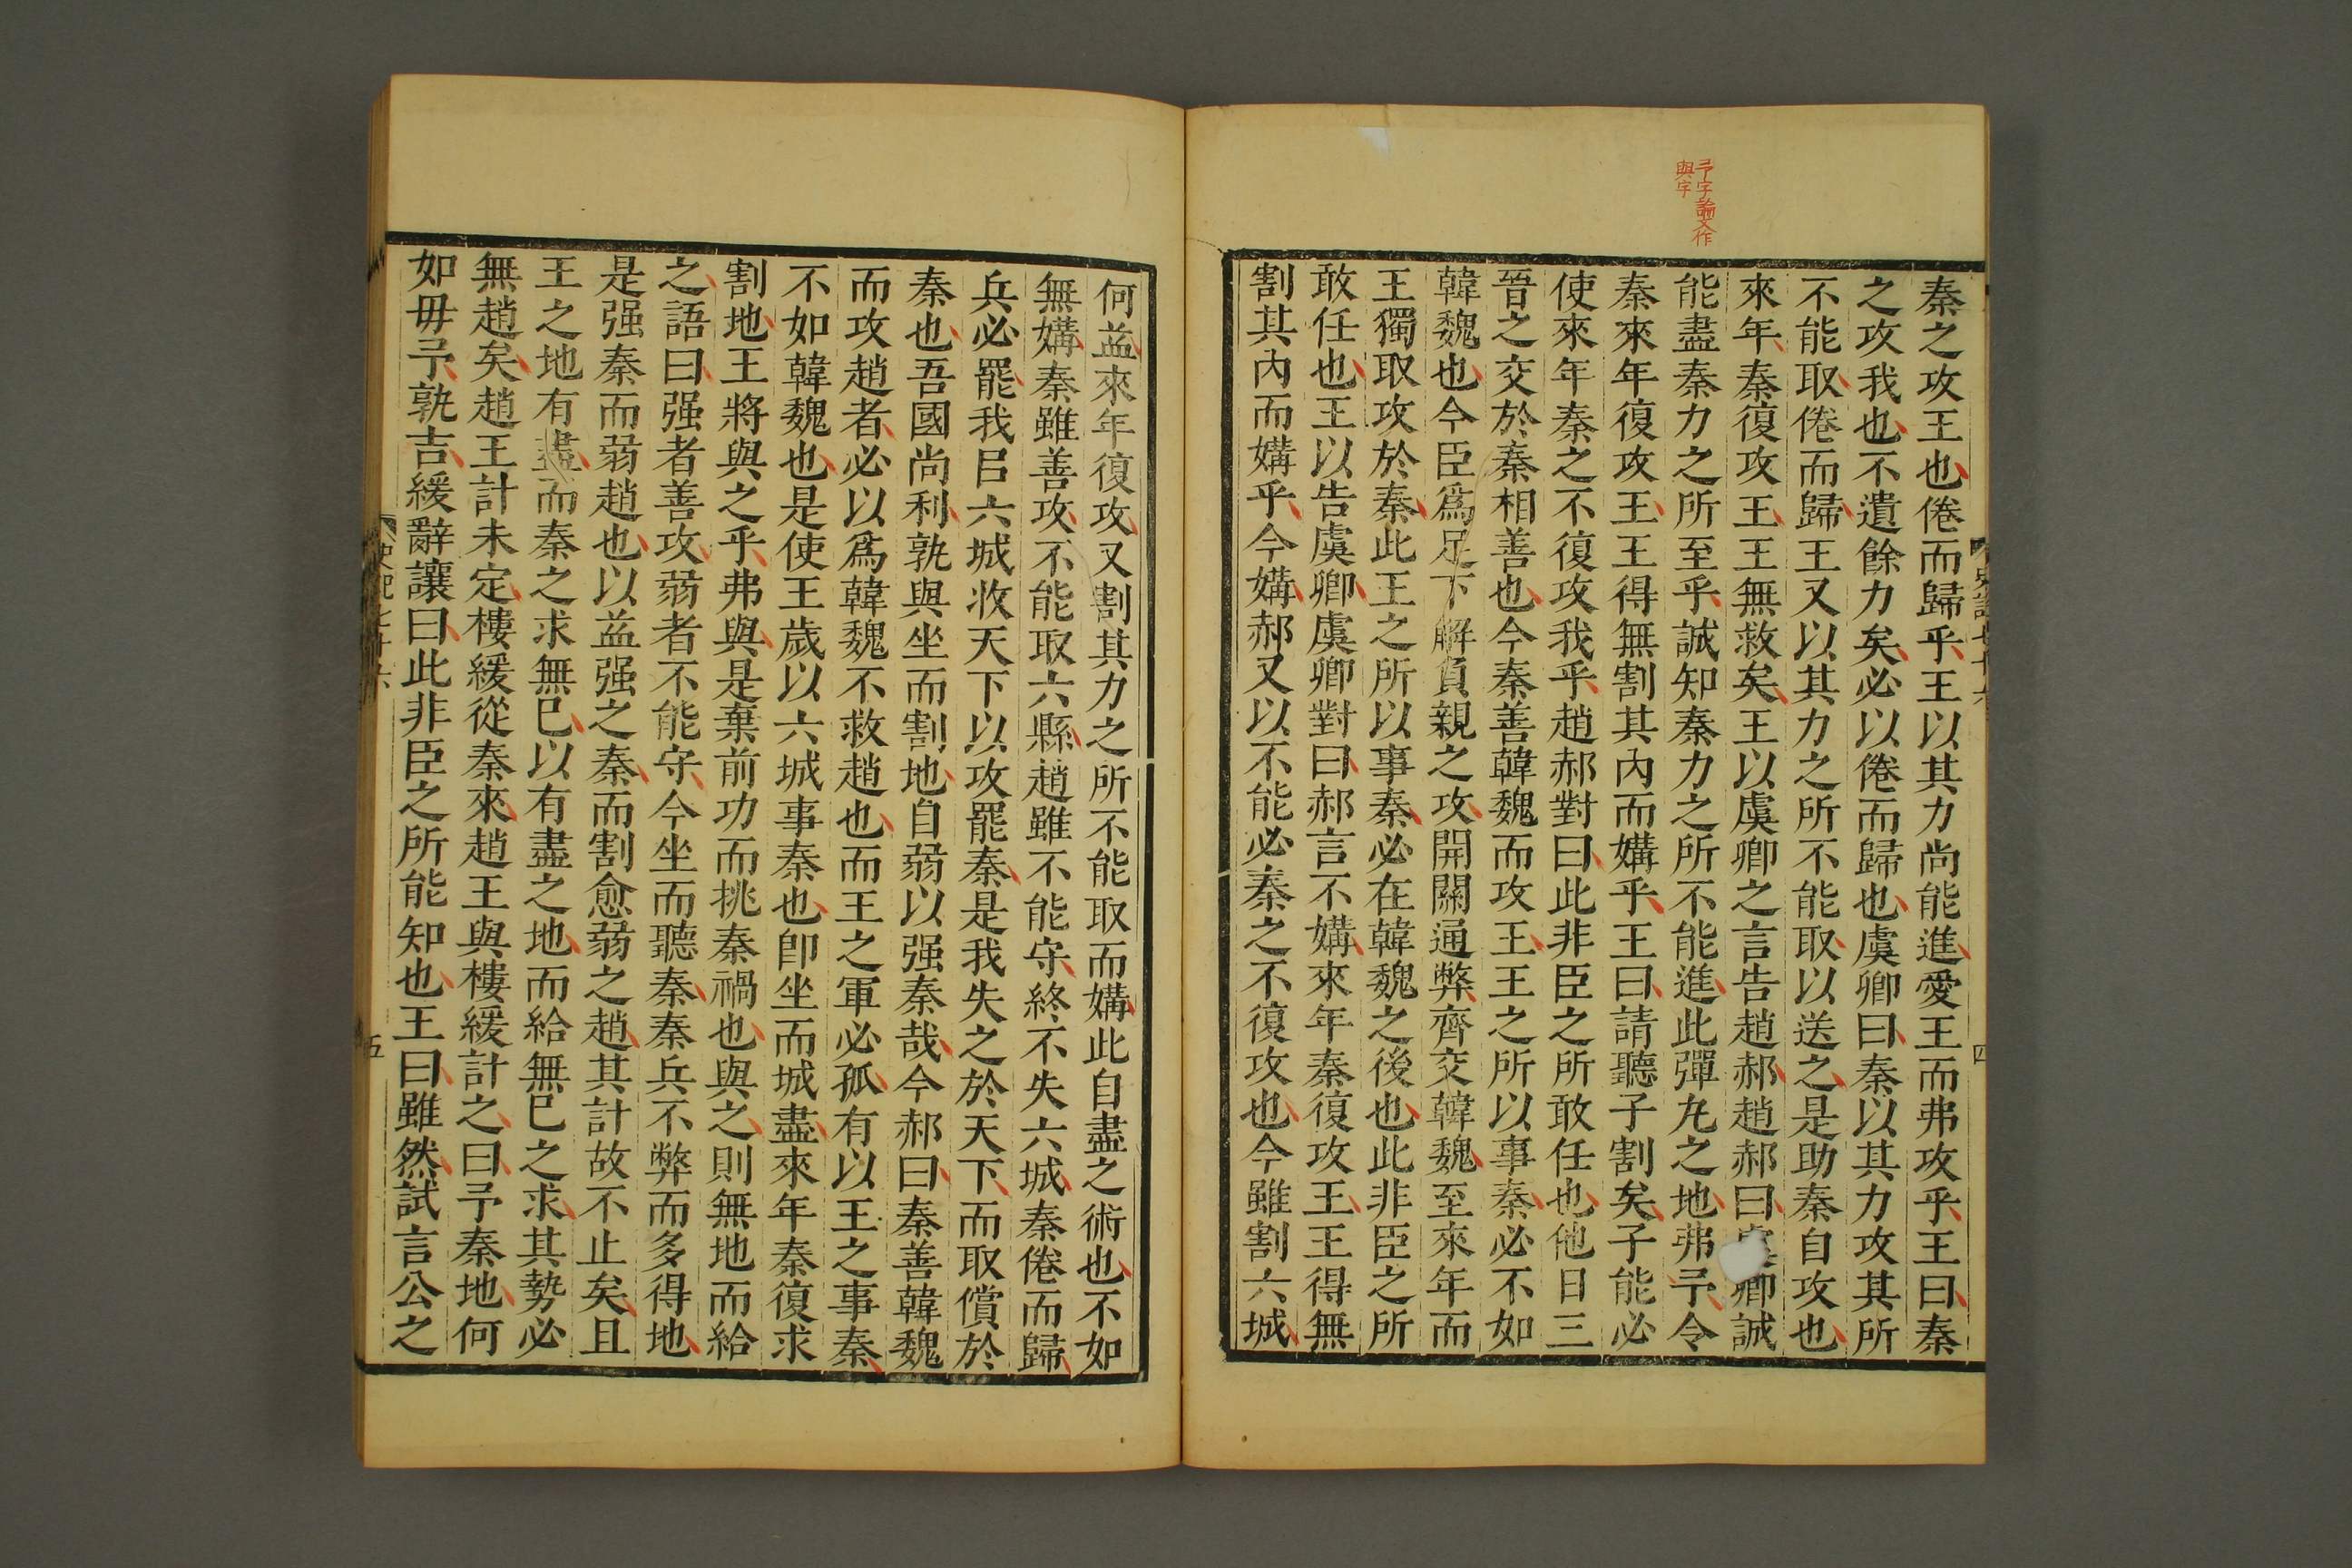 予字論文作
與字
秦之攻王也倦而歸乎王以其力尚能進愛王而弗攻乎王曰秦
之攻我也不遺餘力矣必以倦而歸也虞卿曰秦以其力攻其所
不能取倦而歸王又以其力之所不能取以送之是助秦自攻也
來年秦復攻王王無救矣王以虞卿之言告趙郝趙郝曰虞卿誠
能盡秦力之所至乎誠知秦力之所不能進此彈丸之地弗予令
秦來年復攻王王得無割其內而媾乎王曰請聽子割矣子能必
使來年秦之不復攻我乎趙郝對曰此非臣之所敢任也他日三
晉之交於秦相善也今秦善韓魏而攻王王之所以事秦必不如
韓魏也今臣爲足下解負親之攻開關通弊齊交韓魏至來年而
王獨取攻於秦此王之所以事秦必在韓魏之後也此非臣之所
敢任也王以告虞卿虞卿對曰郝言不媾來年秦復攻王王得無
割其內而媾乎今媾郝又以不能必秦之不復攻也今雖割六城
四
何益來年復攻又割其力之所不能取而媾此自盡之術也不如
無媾秦雖善攻不能取六縣趙雖不能守終不失六城秦倦而歸
兵必罷我㠯六城收天下以攻罷秦是我失之於天下而取償於
秦也吾國尚利孰與坐而割地自弱以强秦哉今郝曰秦善韓魏
而攻趙者必以爲韓魏不救趙也而王之軍必孤有以王之事秦
不如韓魏也是使王歲以六城事秦也卽坐而城盡來年秦復求
割地王將與之乎弗與是棄前功而挑秦禍也與之則無地而給
之語曰强者善攻弱者不能守今坐而聽秦秦兵不弊而多得地
是强秦而弱趙也以益强之秦而割愈弱之趙其計故不止矣且
王之地有盡而秦之求無已以有盡之地而給無已之求其勢必
無趙矣趙王計未定樓緩從秦來趙王與樓緩計之曰予秦地何
如毋予孰吉緩辭讓曰此非臣之所能知也王曰雖然試言公之
五